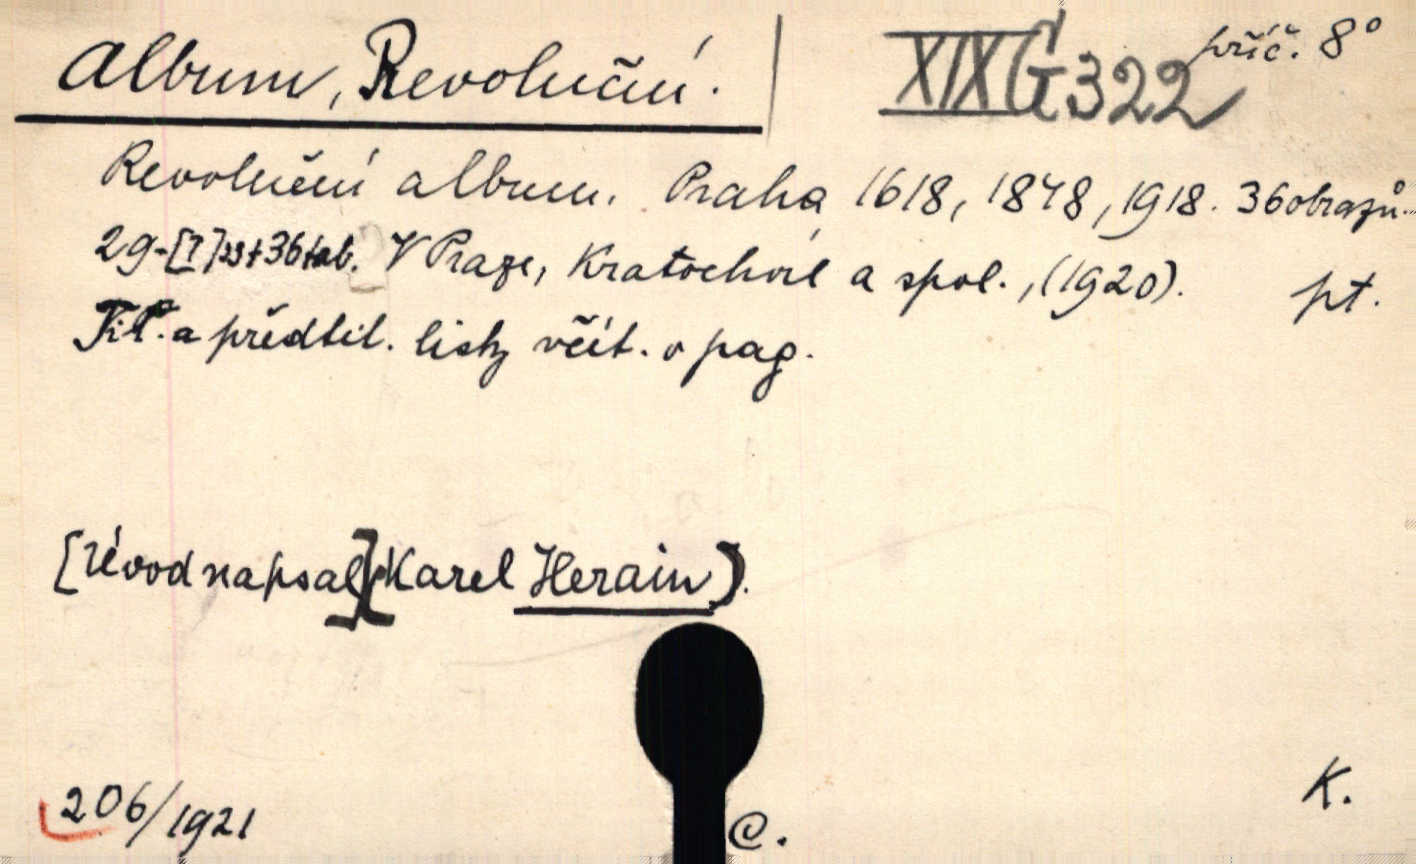 Album, Revoluční. XIX G 322 příč. 8°
Revoluční album. Praha 1618, 1848, 1918. 36 obrazů.
29-[7] ss + 36 tab. V Praze, Kratochvíl a spol., (1920). pt.
Tit. a předtit. listy včít. v pag.
[Úvod napsal] [Karel Herain].
206/1921
C.
K.